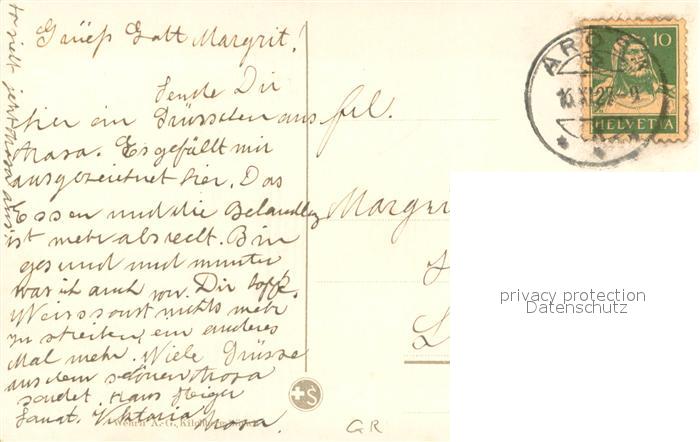 So sieht jetzt Arosa aus!
Grüeß Gott Margrit!
Sende Dir
hier ein Grüsschen aus
Arosa. Es gefällt mir
ausgezeichnet hier. Das
Essen und die Behandlg
ist mehr als recht. Bin
gesund und munter
was ich auch von Dir hoffe.
Weiss sonst nichts mehr
zu schreiben, ein anderes
Mal mehr. Viele Grüsse
aus dem schönen Arosa
sendet Hans
Sanat. Viktoria Arosa.
Wehrli A.-G., Kilchberg
Frl.
Margr
AROSA
10
HELVETIA
privacy protection
Datenschutz
GR